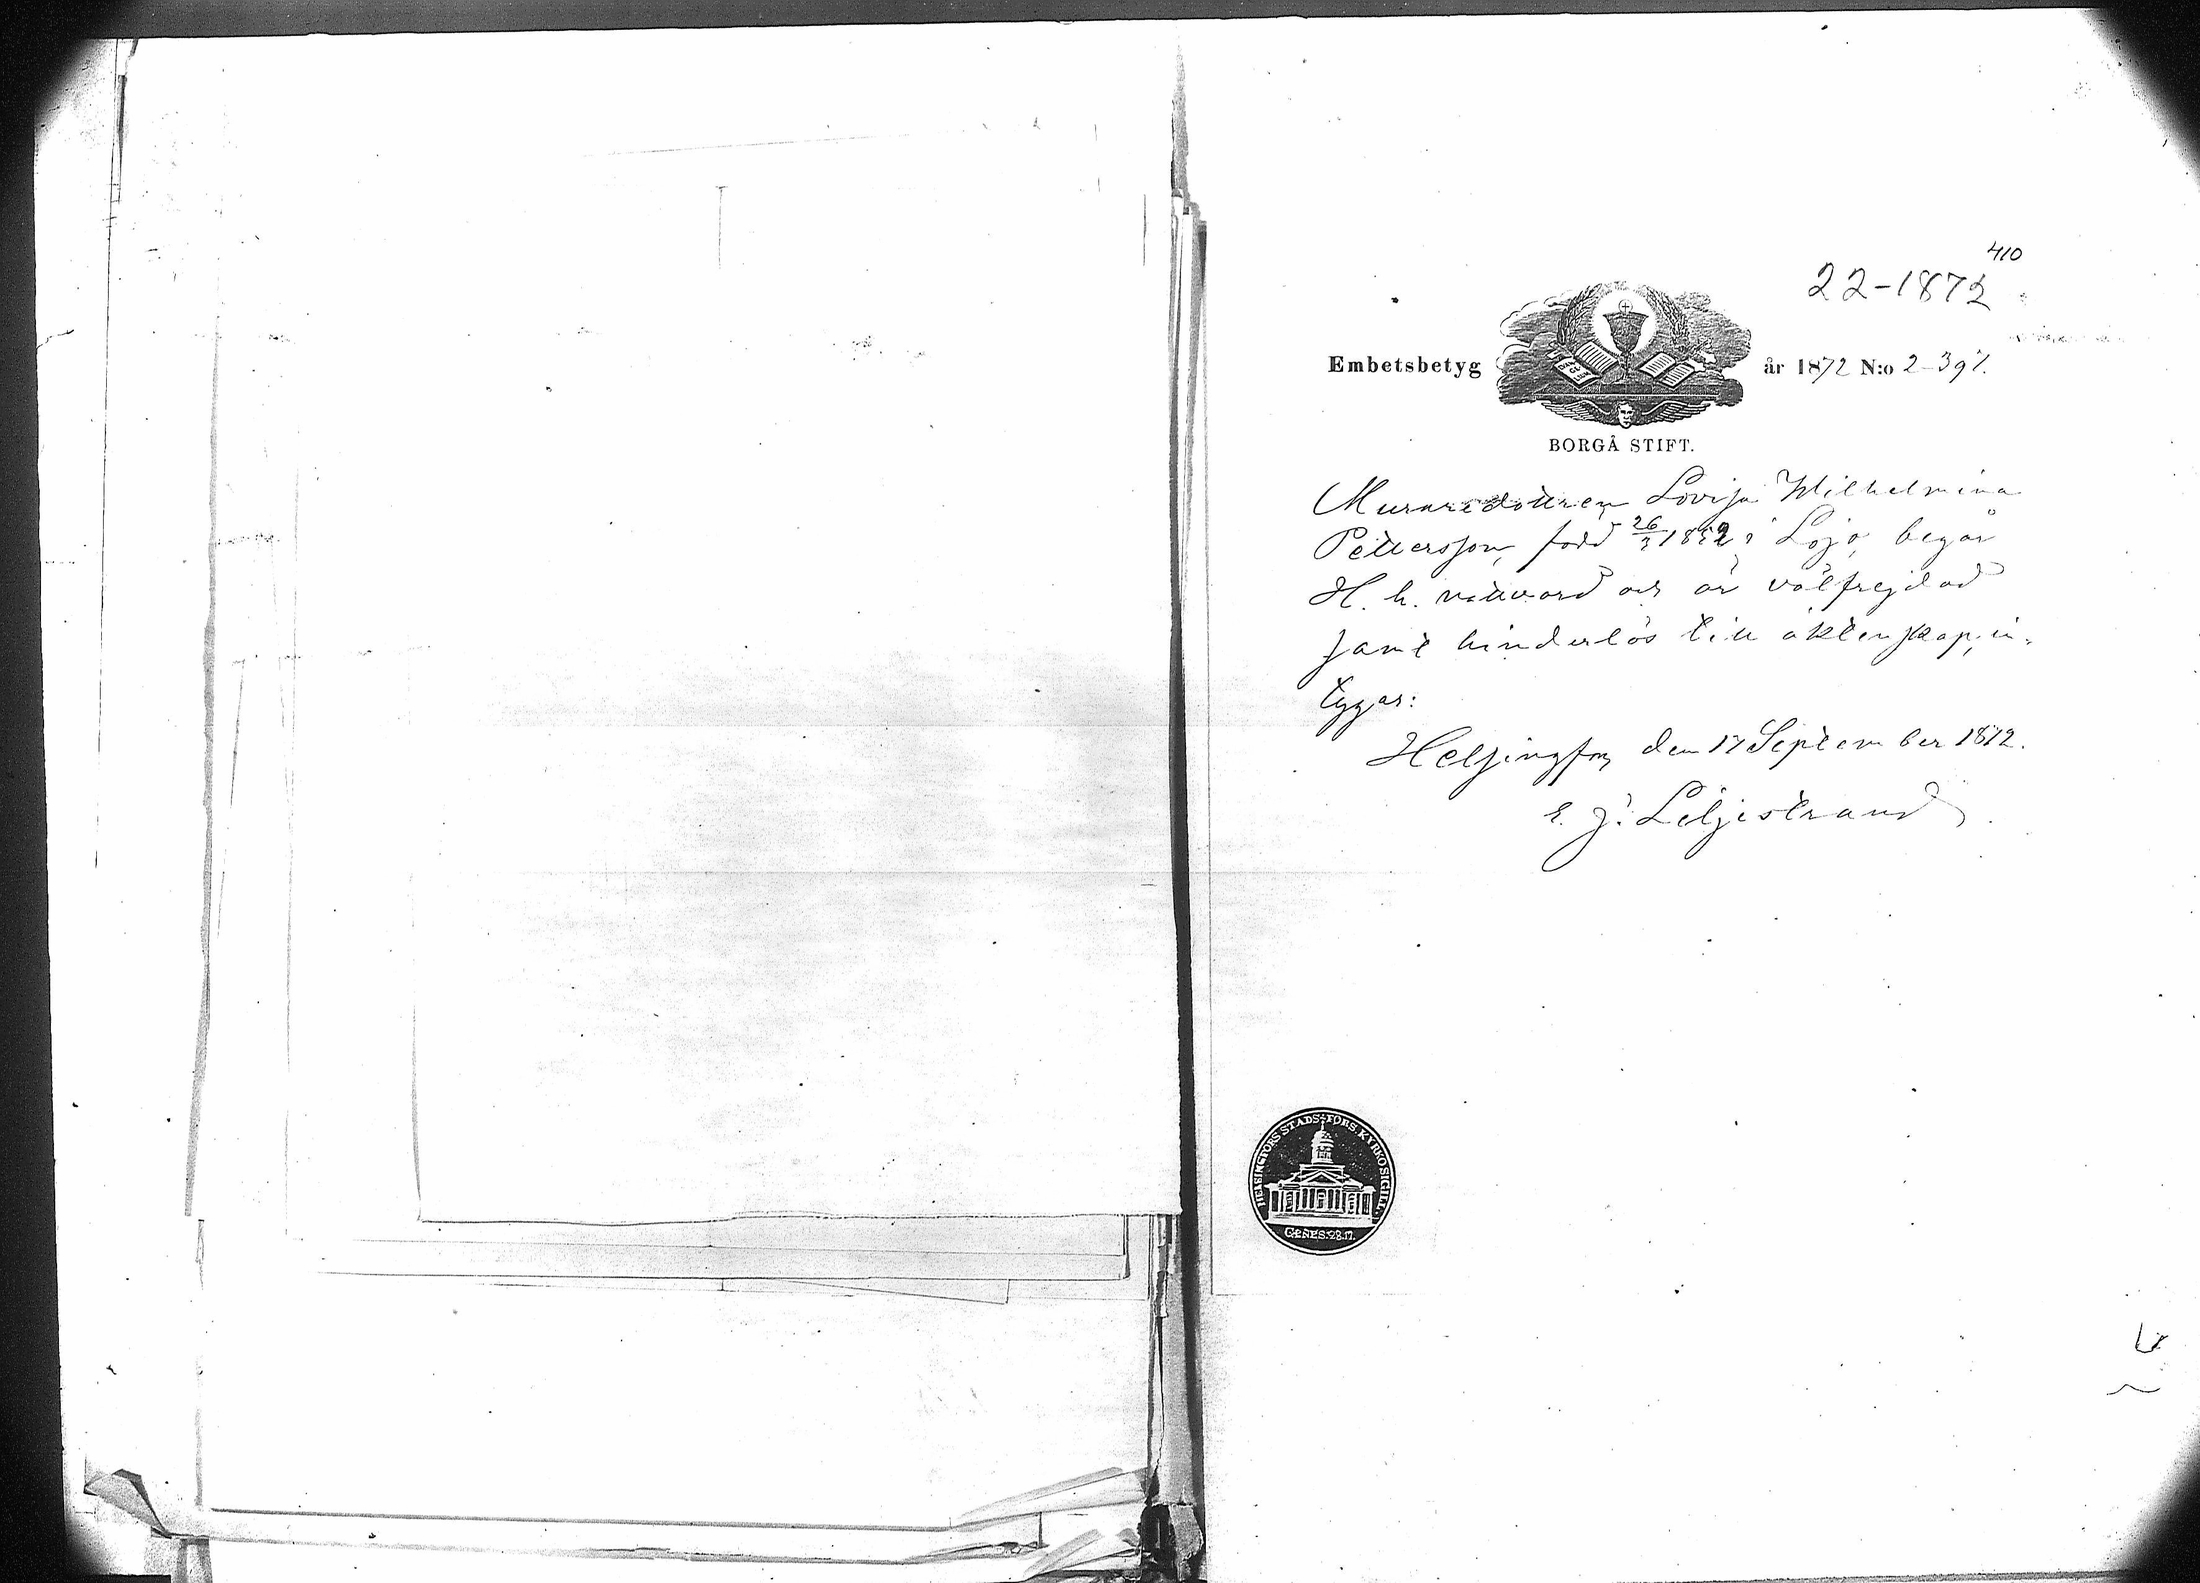 410
22-1872
Embetsbetyg år 1872 N:o 2-397.
BORGÅ STIFT.
Muraredottren Lovisa Wilhelmina
Pettersson, född 26/3 1852 i Lojo, begår
H. h. nattvard och är välfrejdad
samt hinderlös till äktenskap, in-
tygar:
Helsingfors den 17 September 1872.
E. J. Liljestrand
HELSINGFORS STADS-FÖRS. KYRKO SIGILL.
GENES. 28.17.